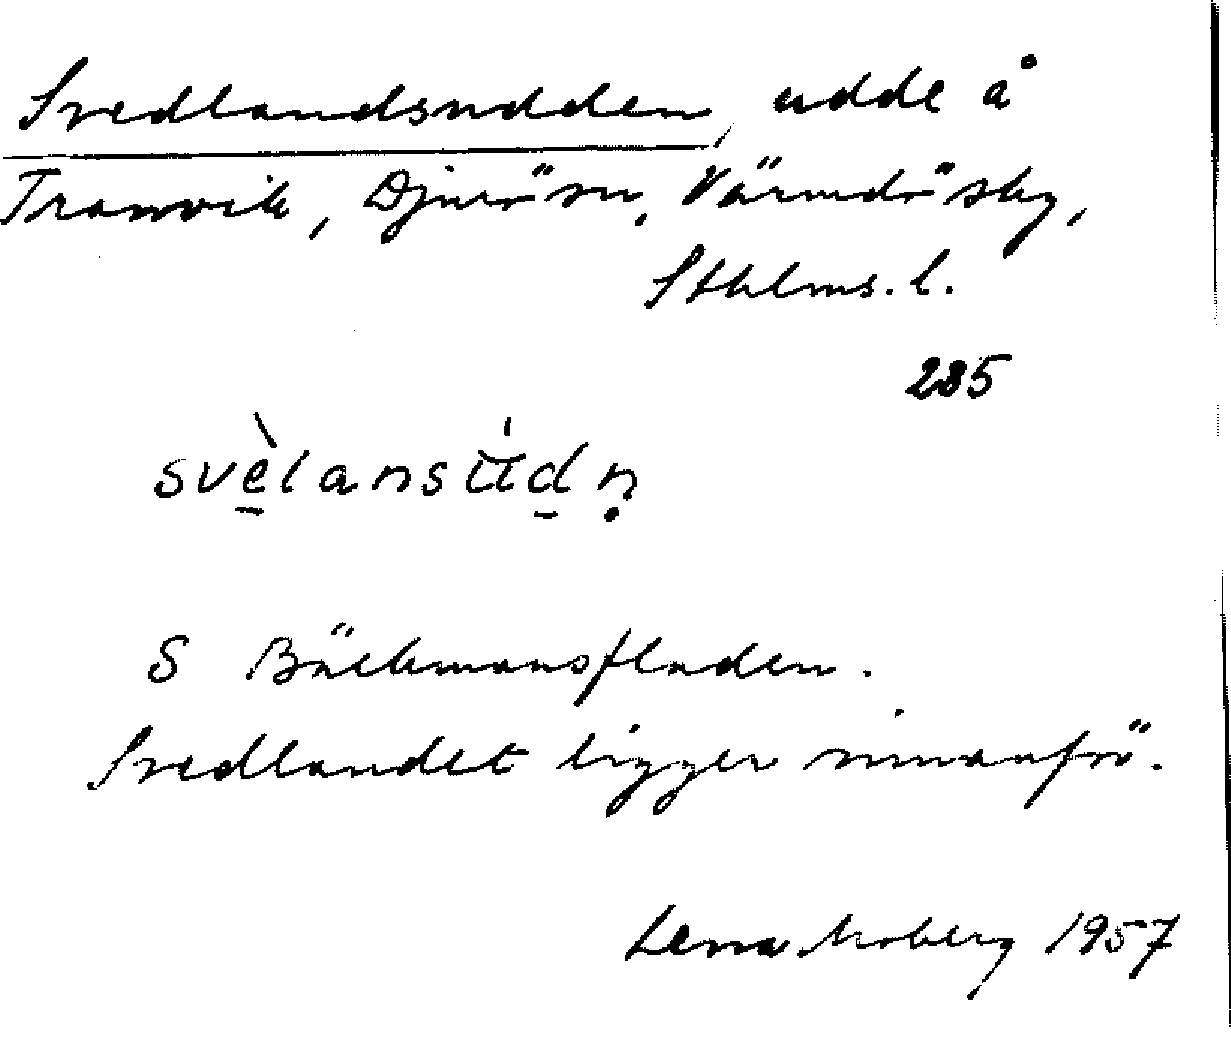 Svedlandsudden, udde å
Tranvik, Djurö sn, Värmdö skg,
Sthlms. l.
285
svè̱lansu̇́ḏṇ
S Bäckmansfladen.
Svedlandet ligger innanför.
Lena Moberg 1957